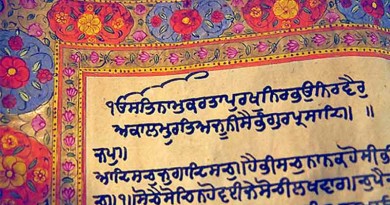 ੴਸਤਿਨਾਮੁਕਰਤਾਪੁਰਖੁਨਿਰਭਉਨਿਰਵੈਰੁ
ਅਕਾਲਮੂਰਤਿਅਜੂਨੀਸੈਭੰਗੁਰਪ੍ਰਸਾਦਿ॥
ਜਪੁ॥
ਆਦਿਸਚੁਜੁਗਾਦਿਸਚੁ॥ਹੈਭੀਸਚੁਨਾਨਕਹੋਸੀਭੀ
ਸਚੁ॥੧॥ਸੋਚੈਸੋਚਿਨਹੋਵਈਜੇਸੋਚੀਲਖਵਾਰ॥ਚੁਪੈ